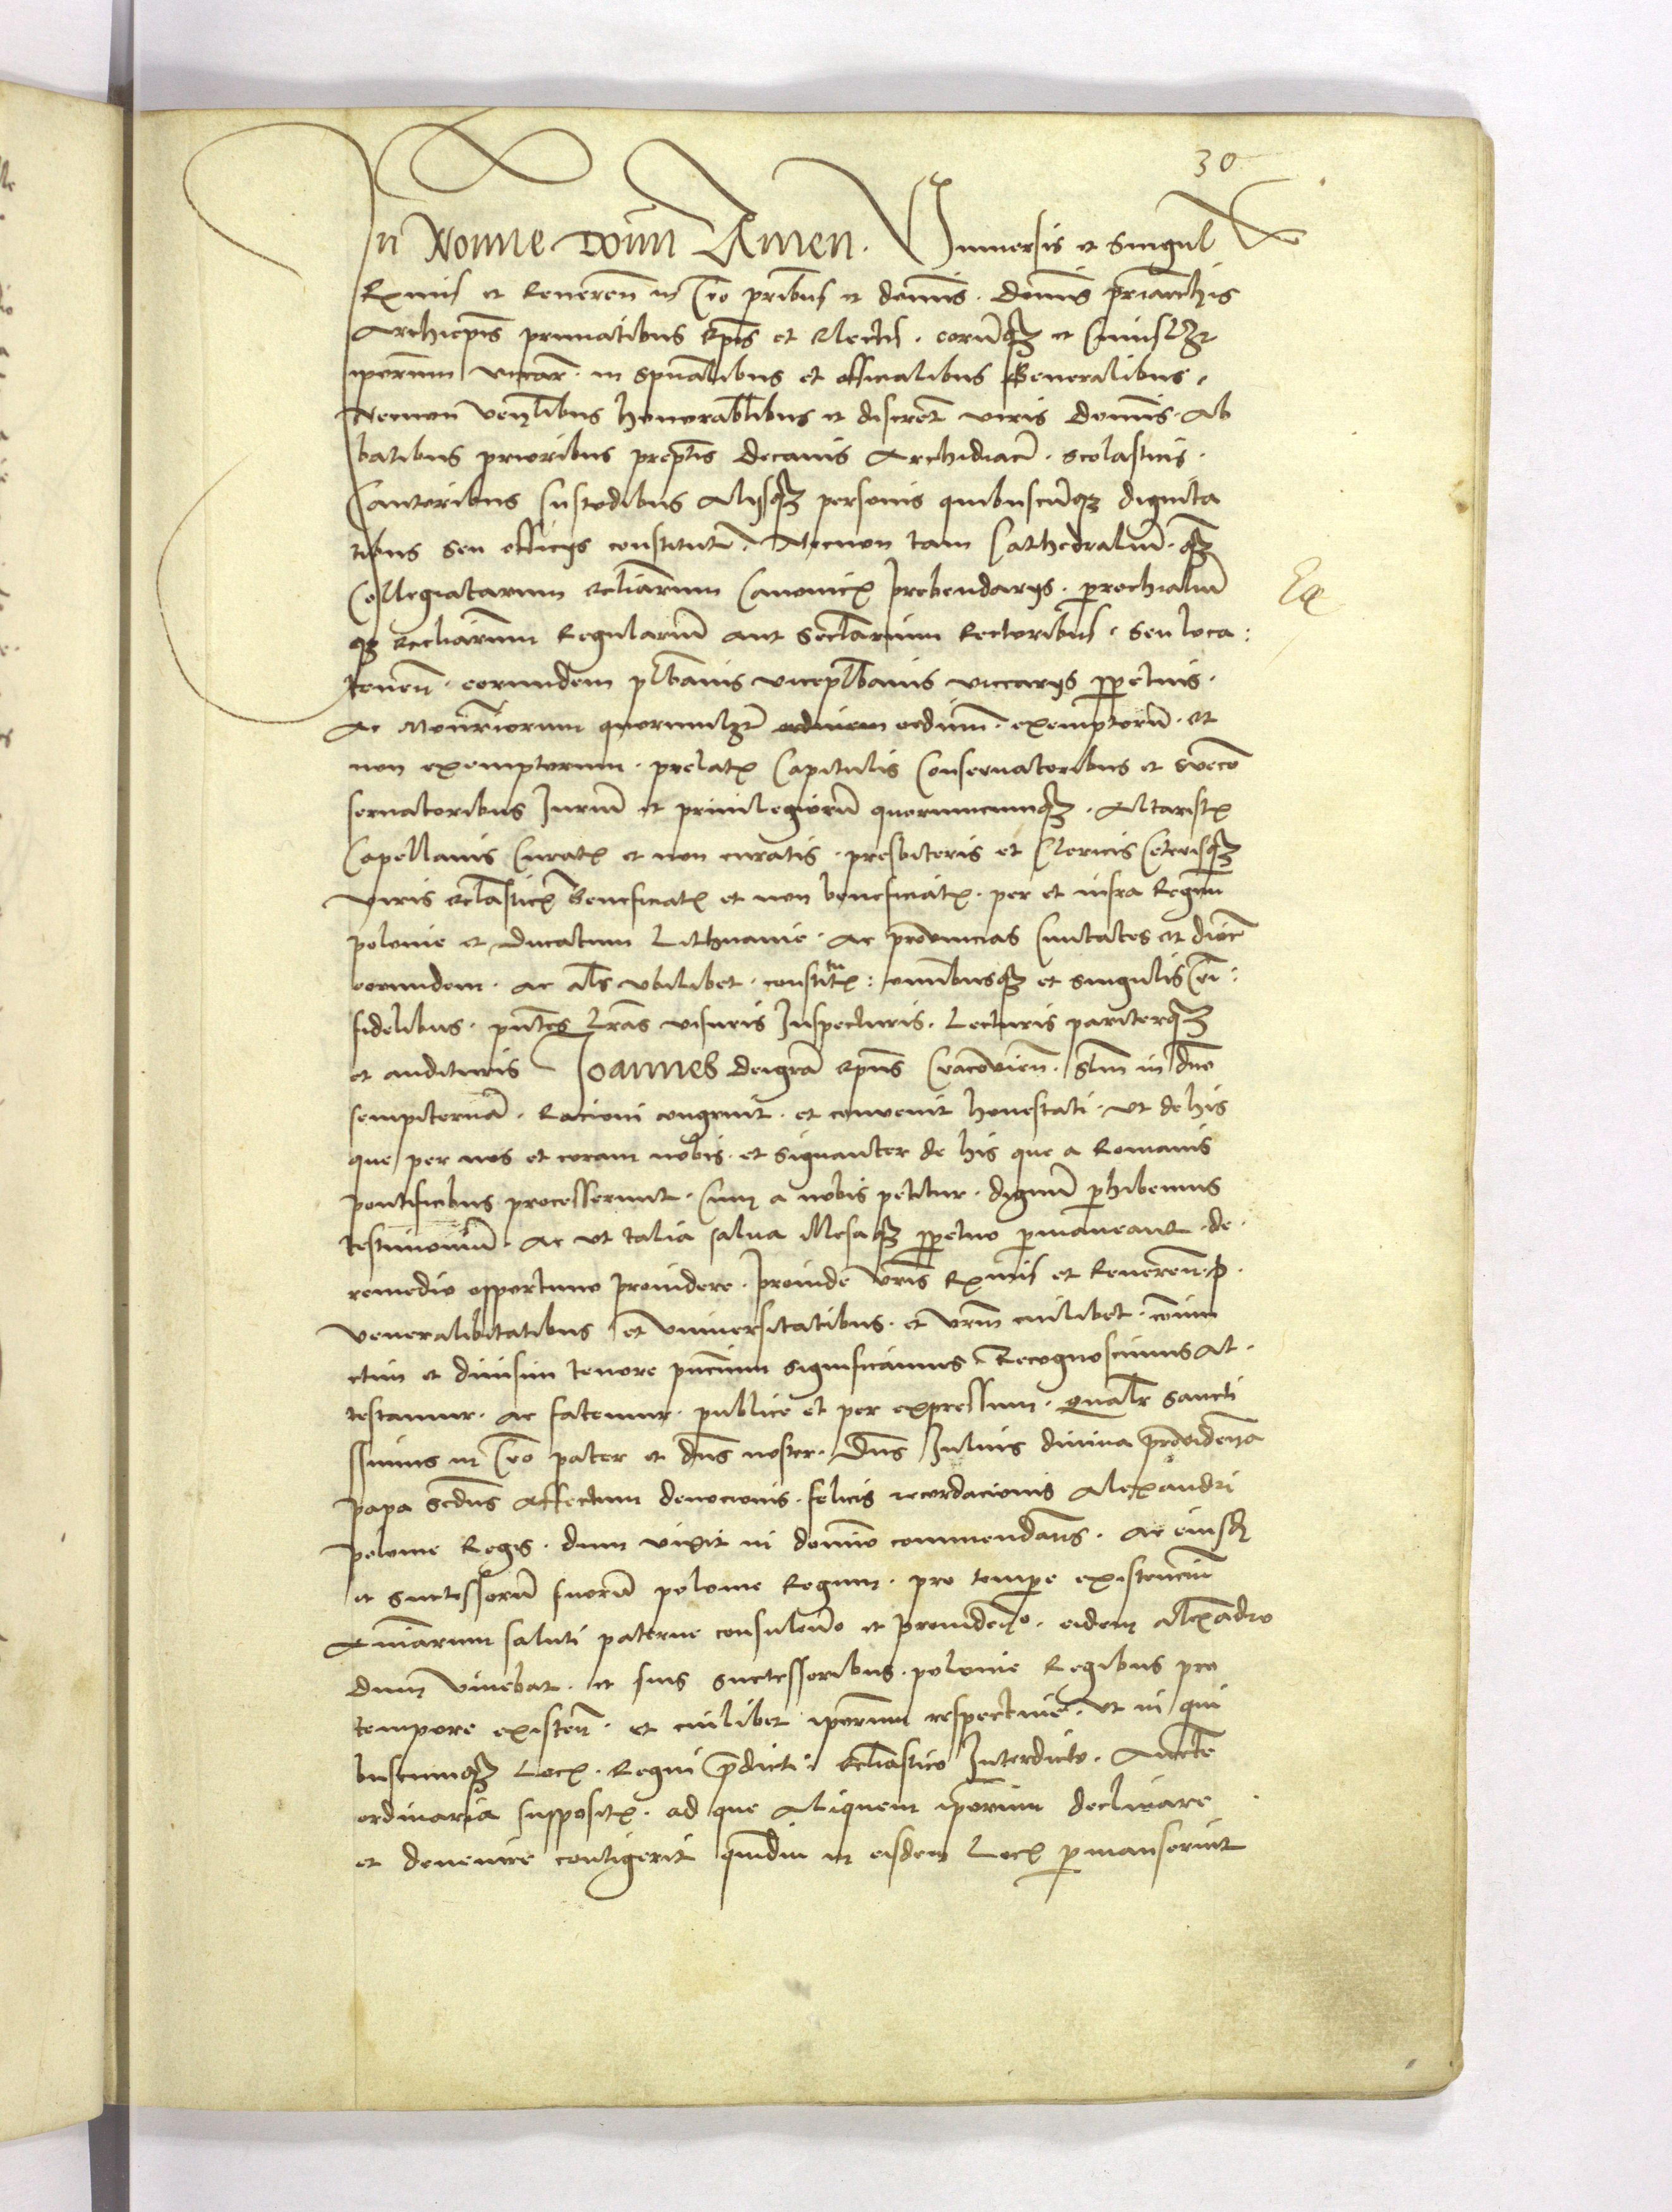 30
In Nomine Domini Amen. Vniuersis et Singul
Rxmis et Reueren in Cro pribus et domis. Domis priarchis
Archiepis primatibus Epis et Electis. eorumqz et Cuiuslzt
iporum vicar. in spualibus et officialibus Generalibus.
Necnon venlibus honorabilibus et discret viris Domis. Ab
batibus prioribus prepotis Decanis Archidiac. Scolasticis.
Cantoribus Custodibus Alijsqz personis quibuscunqz dignita
tibus seu officijs constitut. Necnon tam Cathedralium. qz
Collegiatarum eccliarum Canonicz prebendarijs. parochialium
qz Eccliarum Regularium aut Seclarium Rectoribus. seu loca:
tenen. eorundem plbanis viceplbanis viccarijs perpetuis.
Ac Monriorum quorumlzt ordinum. exemptorum. et
non exemptorum. prelatz Capitulis Conseruatoribus et Subcon
seruatoribus Jurium et priuilegiorum quorumcumqz. Altaristz
Capellanis Curatz et non curatis. presbiteris et Clericis Ceterisqz
viris ecclasticz Beneficiatz et non beneficiatz. per et infra Regnum
polonie et Ducatum Lithuanie. Ac prouincias Ciuitates et dioc
eorundem. ac als vbilibet. constitutz: omnibusqz et singulis Cri:
fidelibus. pntes Lras visuris Inspecturis. Lecturis pariterqz
et audituris Joannes Deigra epus Cracouien. Slm in dno
sempiternam. Racioni congruit. et conuenit honestati. vt de his
que per nos et coram nobis. et signanter de his que a Romanis
pontificibus processerunt. Cum a nobis petitur. dignum perhibemus
testimonium. Ac vt talia salua illesaqz perpetuo permaneant. de
remedio opportuno prouidere. proinde vris Rxmis et Reueren p.
veneralibitatibus et vniuersitatibus. et vrum cuilibet. coniun
ctim et diuisim tenore pncium significamus Recognoscimus At.
testamur. ac fatemur. publice et per expressum. Qualr sancti
ssimus in Cro pater et dns noster. Dns Julius diuina prouidencia
papa Scdus affectum deuocionis. felicis recordacionis Alexandri
polonie Regis. dum vixit in domino commendans. Ac eiusdem
et Successorum suorum polonie Regum. pro tempore existencium
Animarum saluti paterne consulendo et prouidendo. eidem Alexandro
Dum viuebat. et suis Successoribus. polonie Regibus pro
tempore existen. et cuilibet iporum respectiue. vt in qui
buscumqz Locz. Regni predicti. Ecclastico Interdicto. Aucte
ordinaria suppositz. ad que aliquem iporum declinare
et deuenire contigerit quamdiu in eisdem Locz permanserint